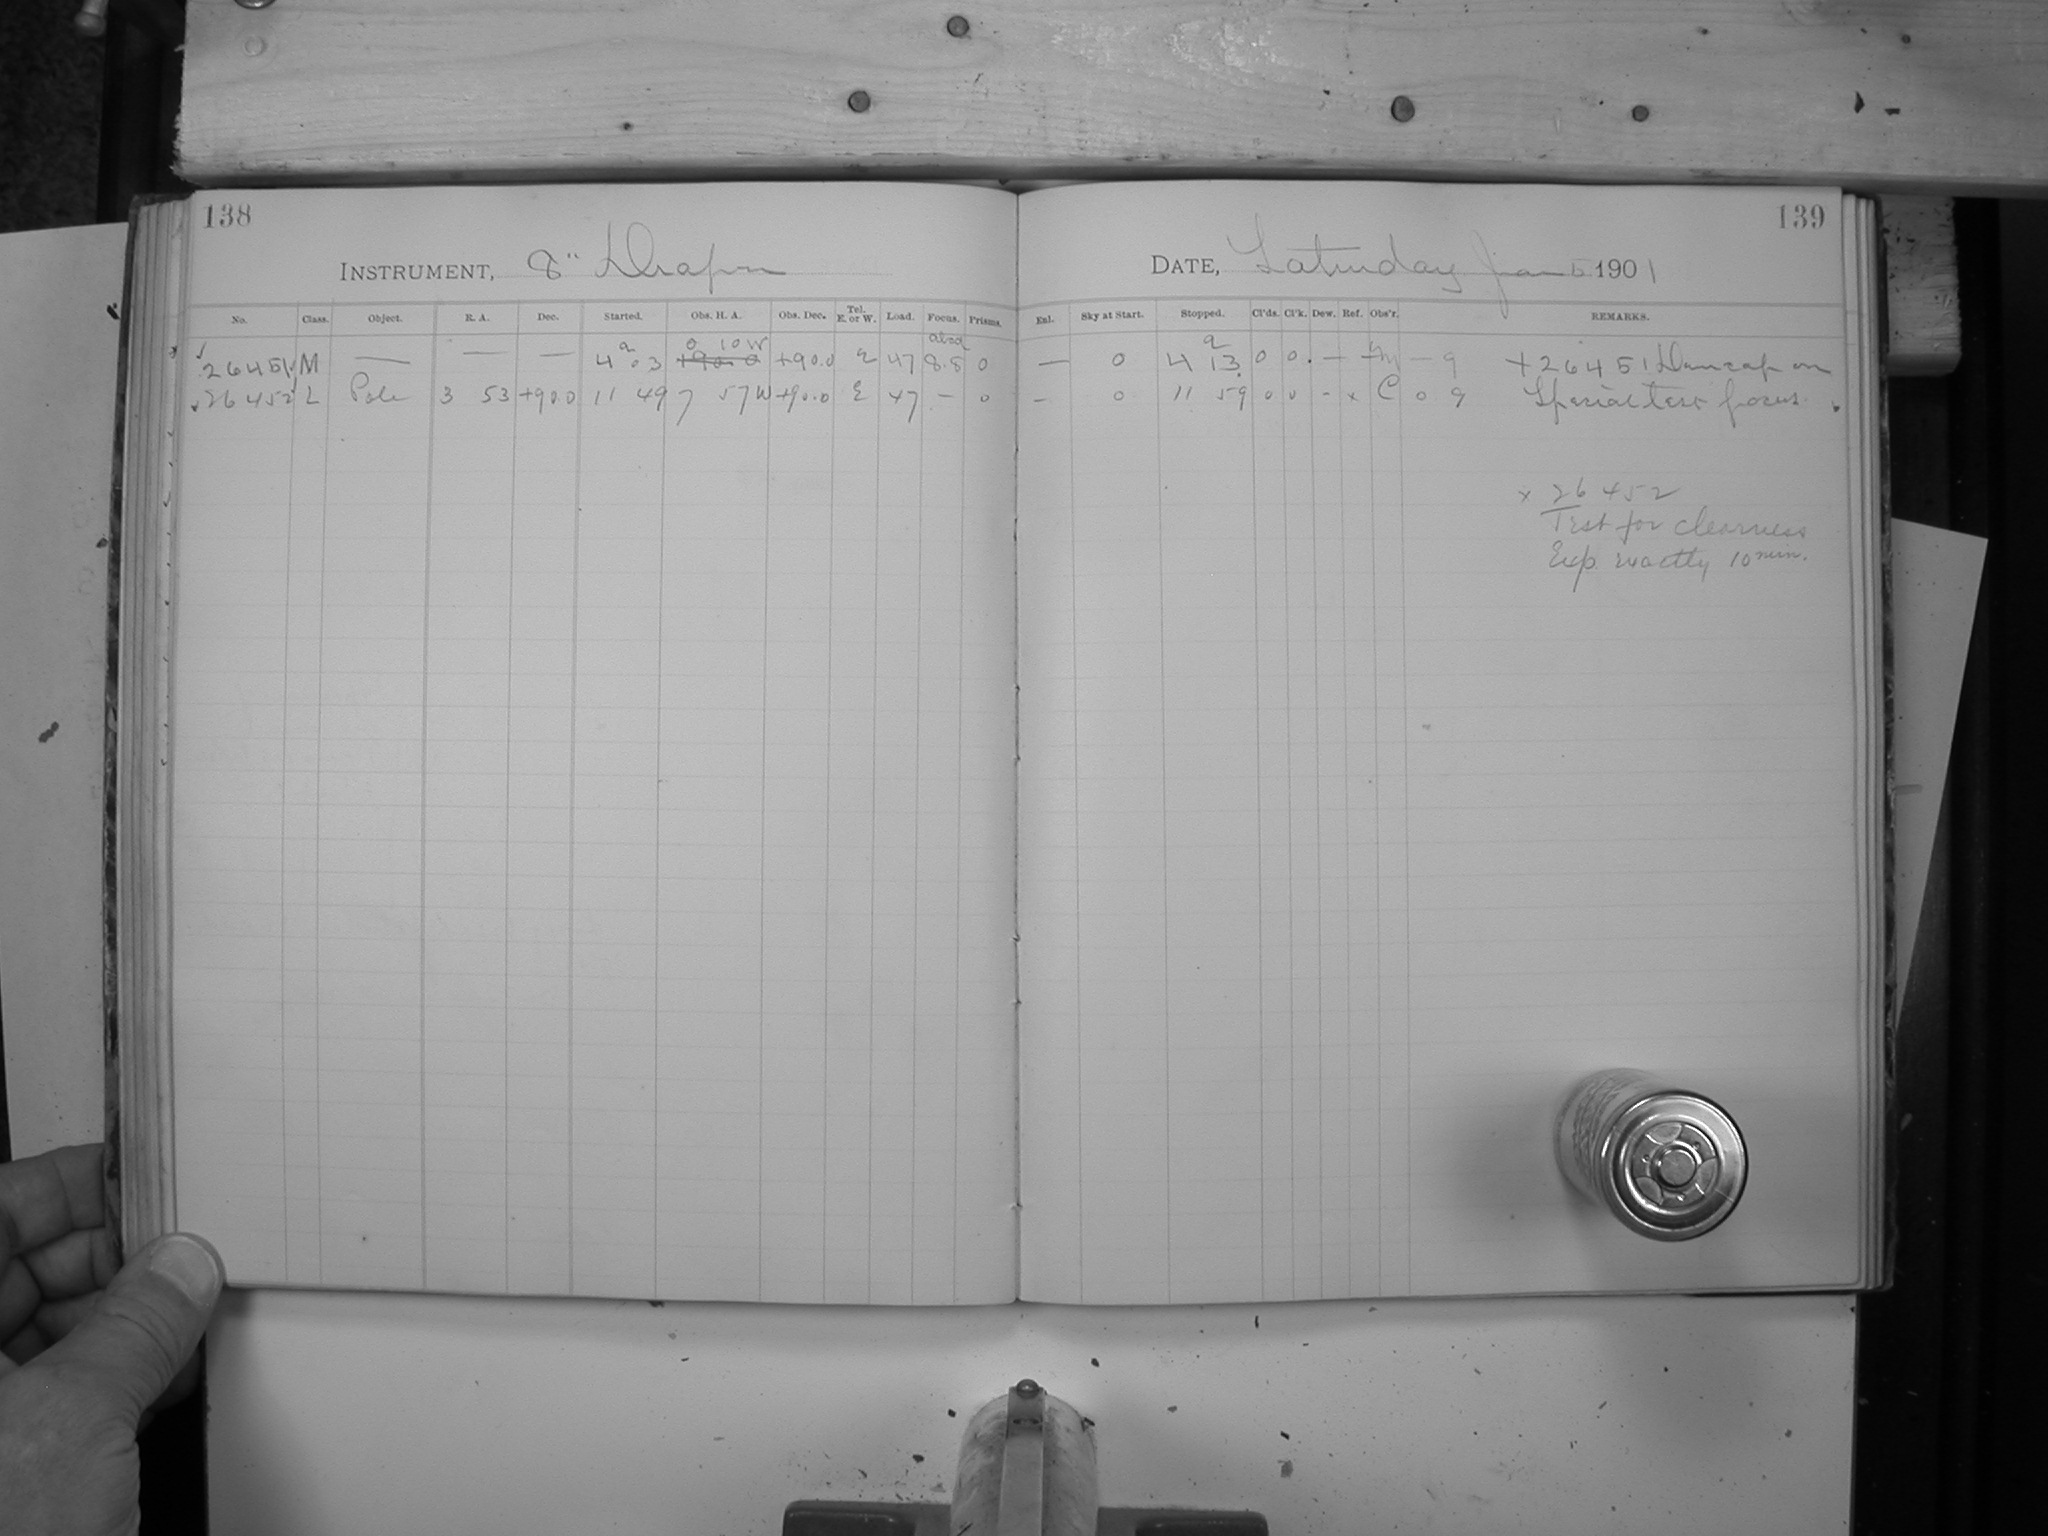 138
INSTRUMENT, 8" Draper
No. Class. Object. R. A. Dec. Started. Obs. H. A. Obs. Dec. Tel. E. or W. Load. Focus. Prisms.
26451 M — — — 4 03 0 10 W +90.0 47 8.8 0
26452 L Pole 3 53 +90.0 11 49 7 57 W +90.0 E 47 – 0
139
DATE, Saturday Jan 5 1901
Enl. Sky at Start. Stopped. Cl'ds. Cl'k. Dew. Ref. Obs'r. REMARKS.
— 0 4 13 0 0 – + — 9 +26451 Dewcap on
– 0 11 59 0 0 – x C 0 9 Special test focus.
x 26452
Test for clearness
Exp. exactly 10 min.